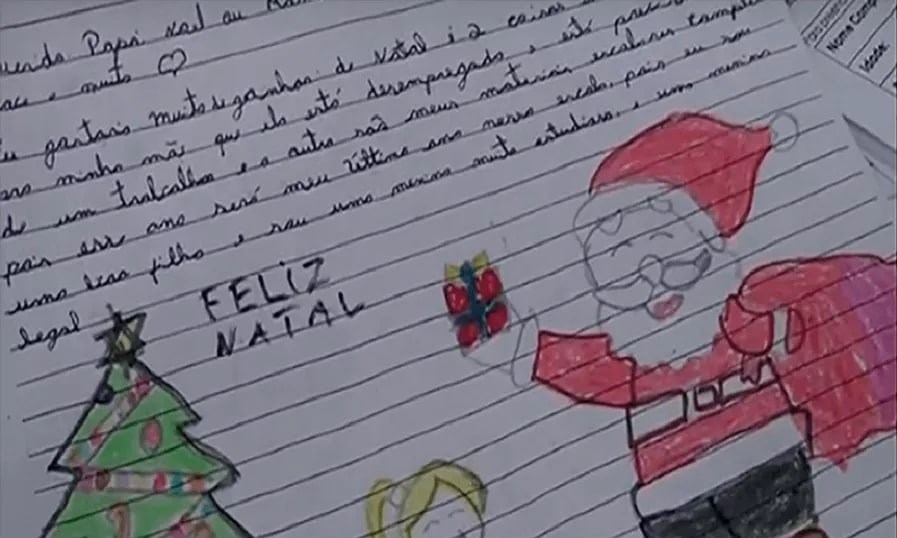 Papai Noel eu
muito ♡
Eu gostaria muito de ganhar de Natal é 2 coisas
minha mãe que ela está desempregada e está
de um trabalho e o outro são meus materiais escolares
pois esse ano será meu último ano nessa escola, pois eu sou
uma boa filha e sou uma menina muito estudiosa, e uma menina
legal
FELIZ
NATAL
Nome Comp
Idade: